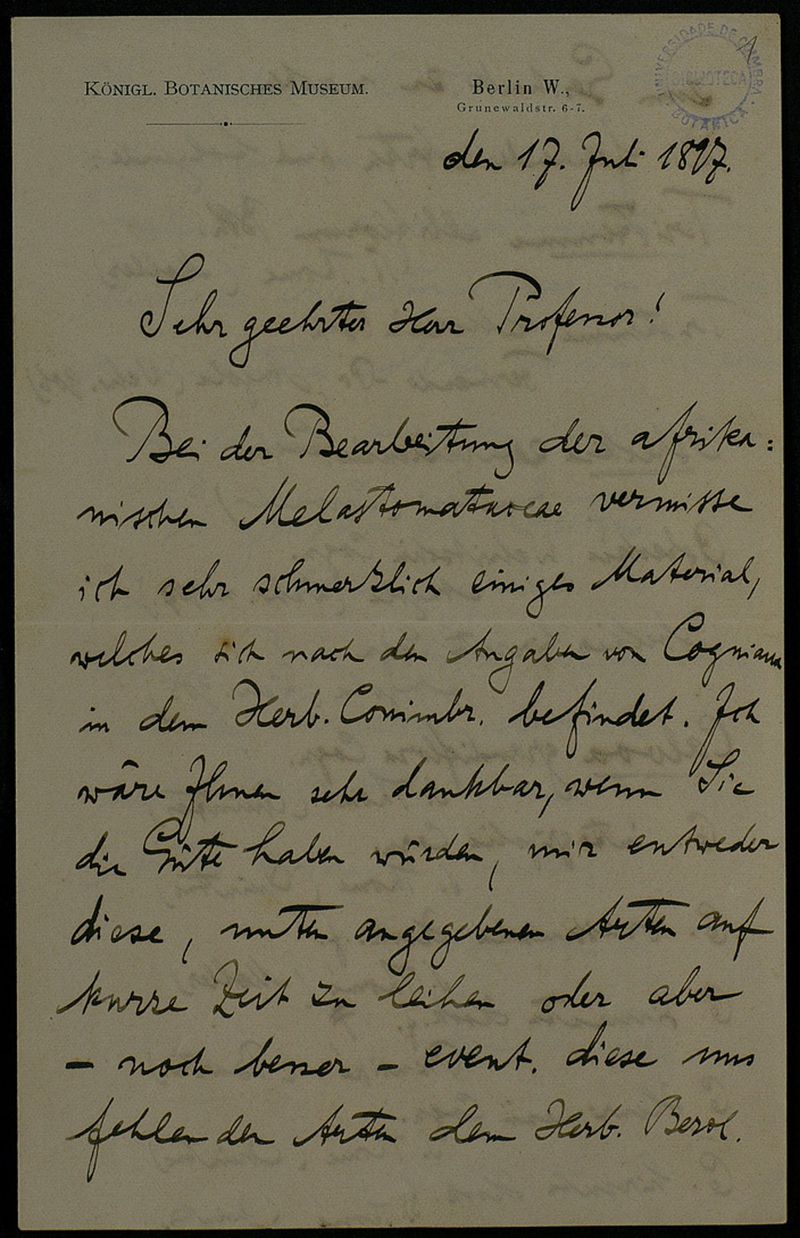 KÖNIGL. BOTANISCHES MUSEUM.
Berlin W.,
Grunewaldstr. 6-7.
UNIVERSIDADE DE COIMBRA
BIBLIOTECA
BOTANICA
1
den 17. Juli 1897.
Sehr geehrter Herr Professor!
Bei der Bearbeitung der afrika=
nischen Melastomataceae vermisse
ich sehr schmerzlich einiges Material,
welches sich nach den Angaben von Cogniaux
in dem Herb. Conimbr. befindet. Ich
wäre Ihnen sehr dankbar, wenn Sie
die Güte haben würden, mir entweder
diese, unten angegebenen Arten auf
kurze Zeit zu leihen oder aber
- noch besser - event. diese uns
fehlenden Arten dem Herb. Berol.